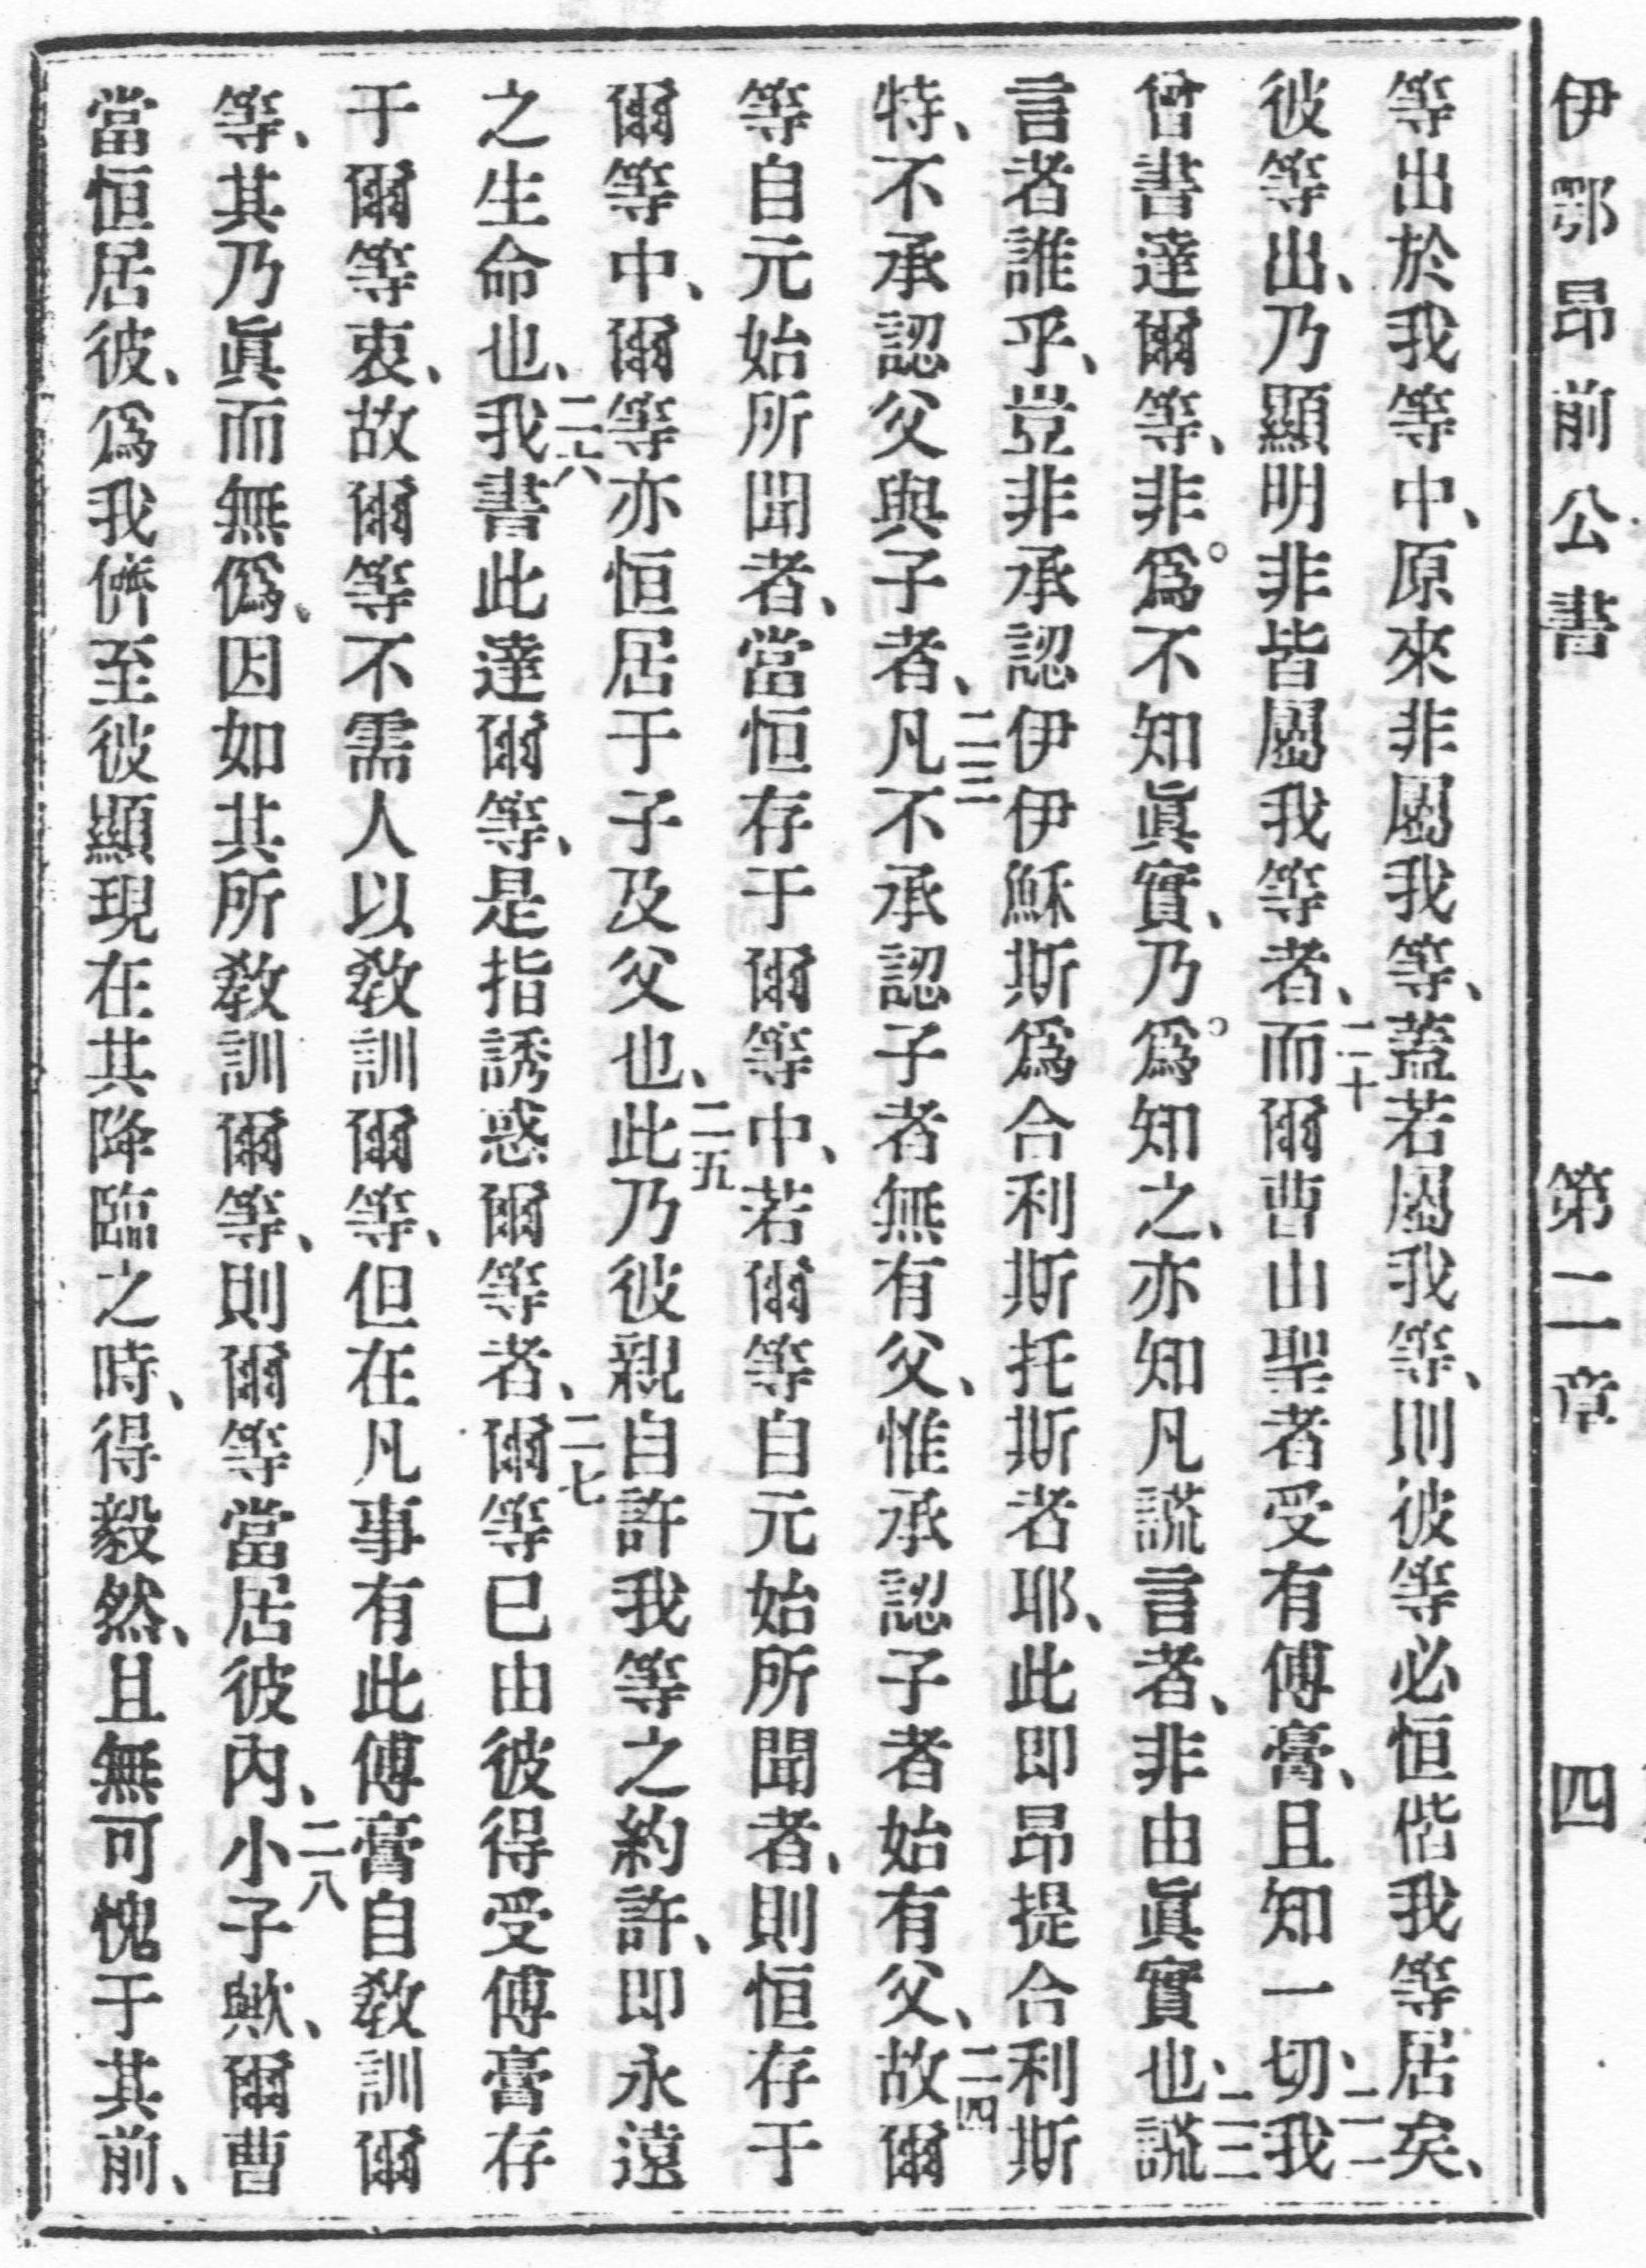 伊鄂昂前公書 第二章 四
等出於我等中、原來非屬我等、蓋若屬我等、則彼等必恒偕我等居矣、
彼等出、乃顯明非皆屬我等者、二十而爾曹由聖者受有傅膏、且知一切、二一我
曾書達爾等、非爲不知眞實、乃爲知之、亦知凡謊言者、非由眞實也、二二謊
言者誰乎、豈非承認伊伊穌斯爲合利斯托斯者耶、此即昂提合利斯
特、不承認父與子者、二三凡不承認子者無有父、惟承認子者始有父、二四故爾
等自元始所聞者、當恒存于爾等中、若爾等自元始所聞者、則恒存于
爾等中、爾等亦恒居于子及父也、二五此乃彼親自許我等之約許、即永遠
之生命也、二六我書此達爾等、是指誘惑爾等者、二七爾等已由彼得受傅膏存
于爾等衷、故爾等不需人以敎訓爾等、但在凡事有此傅膏自敎訓爾
等、其乃眞而無僞、因如其所敎訓爾等、則爾等當居彼內、二八小子歟、爾曹
當恒居彼、爲我儕至彼顯現在其降臨之時、得毅然、且無可愧于其前、